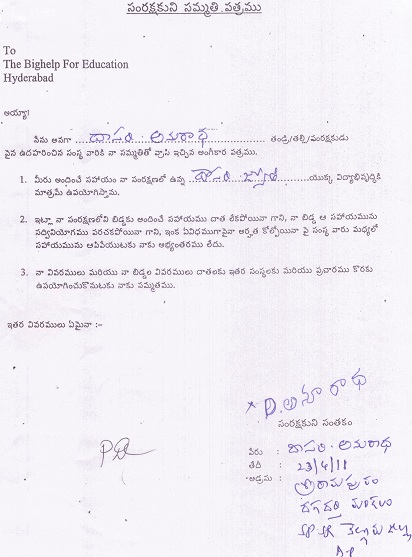 సంరక్షకుని సమ్మతి పత్రము
To
The Bighelp For Education
Hyderabad
అయ్యా!
నేను అనగా దాసరి. అనురాధ తండ్రి/తల్లి/సంరక్షకుడు
పైన ఉదహరించిన సంస్థ వారికి నా సమ్మతితో వ్రాసి ఇచ్చిన అంగీకార పత్రము.
1. మీరు అందించే సహాయం నా సంరక్షణలో ఉన్న దాసరి యొక్క విద్యాభివృద్ధికి
మాత్రమే ఉపయోగిస్తాను.
2. ఇట్లా నా సంరక్షణలోని బిడ్డకు అందించే సహాయము దాత లేకపోయినా గాని, నా బిడ్డ ఆ సహాయమును
సద్వినియోగము పరచకపోయినా గాని, ఇంక ఏవిధముగానైనా అర్హత కోల్పోయినా పై సంస్థ వారు మధ్యలో
సహాయమును ఆపివేయుటకు నాకు అభ్యంతరము లేదు.
3. నా వివరములు మరియు నా బిడ్డల వివరములు దాతలకు ఇతర సంస్థలకు మరియు ప్రచారము కొరకు
ఉపయోగించుకొనుటకు నాకు సమ్మతము.
ఇతర వివరములు ఏమైనా :-
× D. అనురాధ
సంరక్షకుని సంతకం
పేరు : దాసరి. అనురాధ
తేది : 23/4/11
అడ్రసు : శ్రీరామపురం
దగదర్తి మండలం
నెల్లూరు జిల్లా
A.P